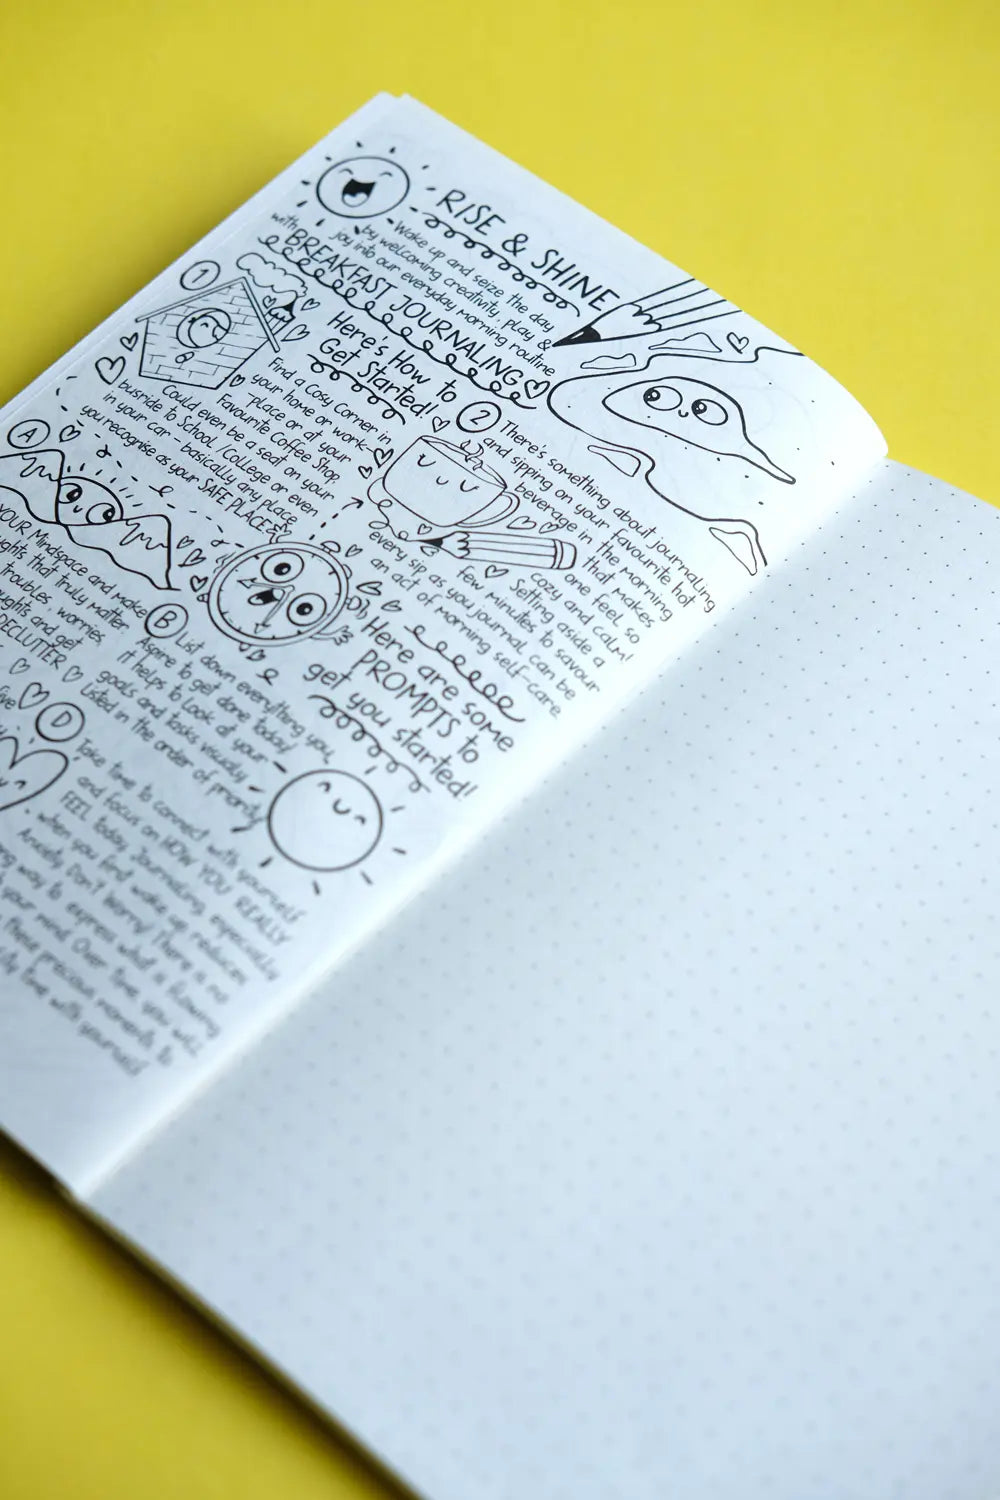 RISE & SHINE
Wake up and seize the day
by welcoming creativity, play &
joy into our everyday morning routine
with
BREAKFAST JOURNALING
Here's How to
Get Started!
1
Find a Cosy Corner in
your home or work-
place or at your
Favourite Coffee Shop
Could even be a seat on your
busride to School /College or even
in your car - basically any place
you recognise as your SAFE PLACE
2
There's something about journaling
and sipping on your favourite hot
beverage in the morning
That makes
one feel so
cozy and calm!
Setting aside a
few minutes to savour
every sip as you journal, can be
an act of morning self-care
Here are some
PROMPTS to
get you started!
A
YOUR Mindspace and make
that truly matter
troubles, worries
and get
DECLUTTER
B
List down everything you
Aspire to get done today!
it helps to look at your
goals and tasks visually
Listed in the order of priority
D
Take time to connect with yourself
and focus on HOW YOU REALLY
FEEL today. Journaling, especially
when you first wake up reduces
Anxiety. Don't Worry! There is no
way to express what is flowing
your mind. Over time, you will
These precious moments to
time with yourself